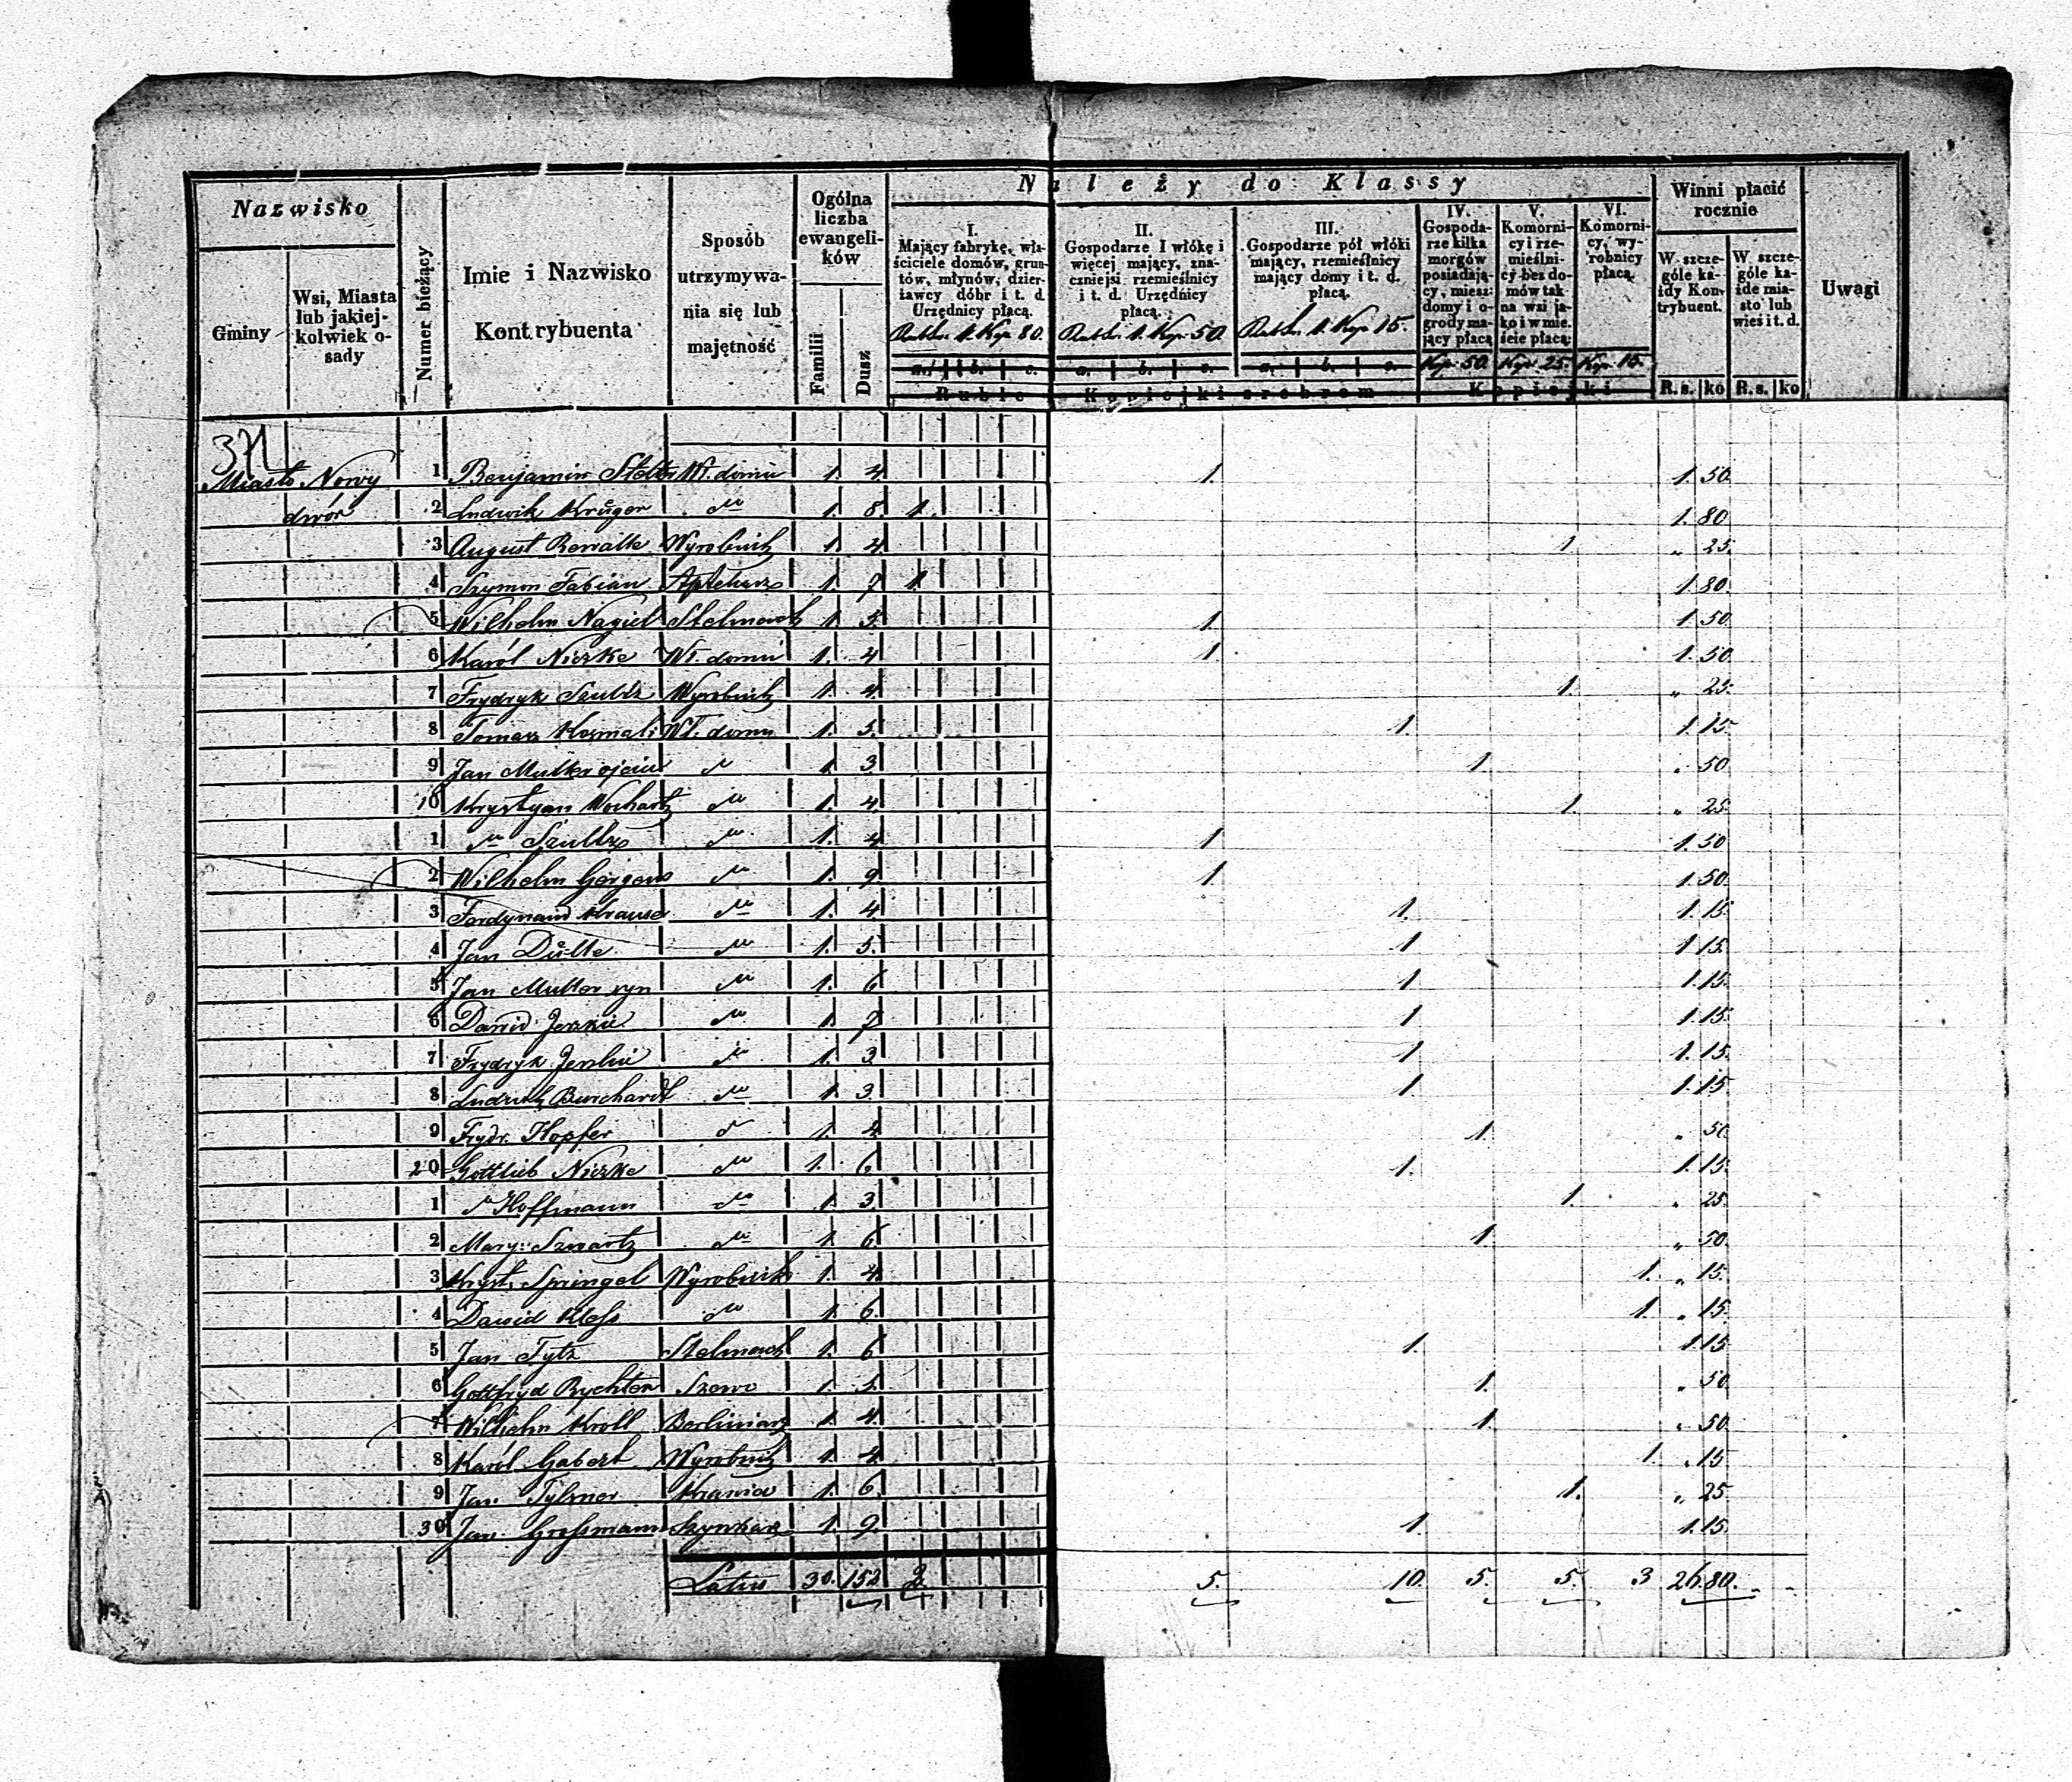 Nazwisko
Gminy
Wsi, Miasta lub jakiej-kolwiek o-sady
Numer bieżący
Imie i Nazwisko Kontrybuenta
Sposób utrzymywa-nia się lub majętność
Ogólna liczba ewangeli-ków
Familii
Dusz
Należy do Klassy
I. Mający fabrykę, wła-ściciele domów, grun-tów, młynów, dzier-żawcy dóbr i t. d. Urzędnicy płacą. Rubsr. 1. Kop. 80.
II. Gospodarze I włókę i więcej mający, zna-czniejsi rzemieślnicy i t. d. Urzędnicy płacą. Rubsr. 1. Kop. 50
III. Gospodarze pół włóki mający, rzemieślnicy mający domy i t. d. płacą. Rubsr. 1. Kop. 15.
IV. Gospoda-rze kilka morgów posiadają-cy, miesz: domy i o-grody ma-jący płacą Kop. 50.
V. Komorni-cy i rze-mieślni-cy bez do-mów tak na wsi ja-ko i w mie-ście płacą: Kop. 25.
VI. Komorni-cy, wy-robnicy płacą. Kop. 15.
a. b. c. a. b. c. a. b. c.
Ruble Kopiejki srebrem Kopiejki
Winni płacić rocznie
W szcze-góle ka-żdy Kon-trybuent.
W szcze-góle ka-żde mia-sto lub wieś i t. d.
R.s. ko R.s. ko
Uwagi
371
Miasto Nowy 1 Benjamin Wł. domu 1. 4. 1. 1. 50.
dwór 2 Ludwik Krüger do 1. 8. 1. 1. 80
3 August Wyrobnik 1. 4. 1 " 25
4 Szymon Fabian Aptekarz 1. 7 1. 1 80.
5 Wilhelm Nagiel Stelmach 1. 5. 1. 1. 50.
6 Karól Niezke Wł. domu 1. 4 1. 1. 50.
7 Frydryk Szultz Wyrobnik 1. 4. 1. " 25.
8 Tomasz Wł. domu 1. 5. 1. 1. 15.
9 Jan Muller ojciec do 1. 3. 1. " 50
10 Krystyan do 1. 4 1. " 25.
1 do Szultz do 1. 4 1. 1. 50
2 Wilhelm Gergens do 1. 9. 1. 1. 50.
3 Ferdynand Krause do 1. 4. 1. 1. 15.
4 Jan do 1. 5. 1. 1 15.
5 Jan Muller syn do 1. 6 1. 1. 15.
6 Dawid do 1. 7 1. 1. 15.
7 Frydryk do 1. 3 1. 1. 15.
8 Ludwik Burchardt do 1. 3. 1. 1. 15
9 Frydr. Hopfer do 1. 4. 1. " 50.
20 Gottlieb Niezke do 1. 6. 1. 1. 15.
1 do Hoffmann do 1. 3. 1. " 25.
2 Mary: Szwartz do 1. 6. 1. " 50.
3 Kryst: Springel Wyrobnik 1. 4. 1. " 15.
4 Dawid Kloss do 1. 6. 1. " 15.
5 Jan Tytz Stelmach 1. 6 1. 1. 15
6 Gottfryd Rychter Szewc 1. 5. 1. " 50.
7 Wilhelm Kroll Berliniarz 1. 4. 1. " 50.
8 Karól Gabert Wyrobnik 1. 4. 1 " 15
9 Jan Tylmer Krawiec 1. 6. 1. " 25
30 Jan Grossmann Szynkarz 1. 9. 1. 1. 15.
Latus 30. 152 2. 5. 10. 5. 5. 3 26. 80.